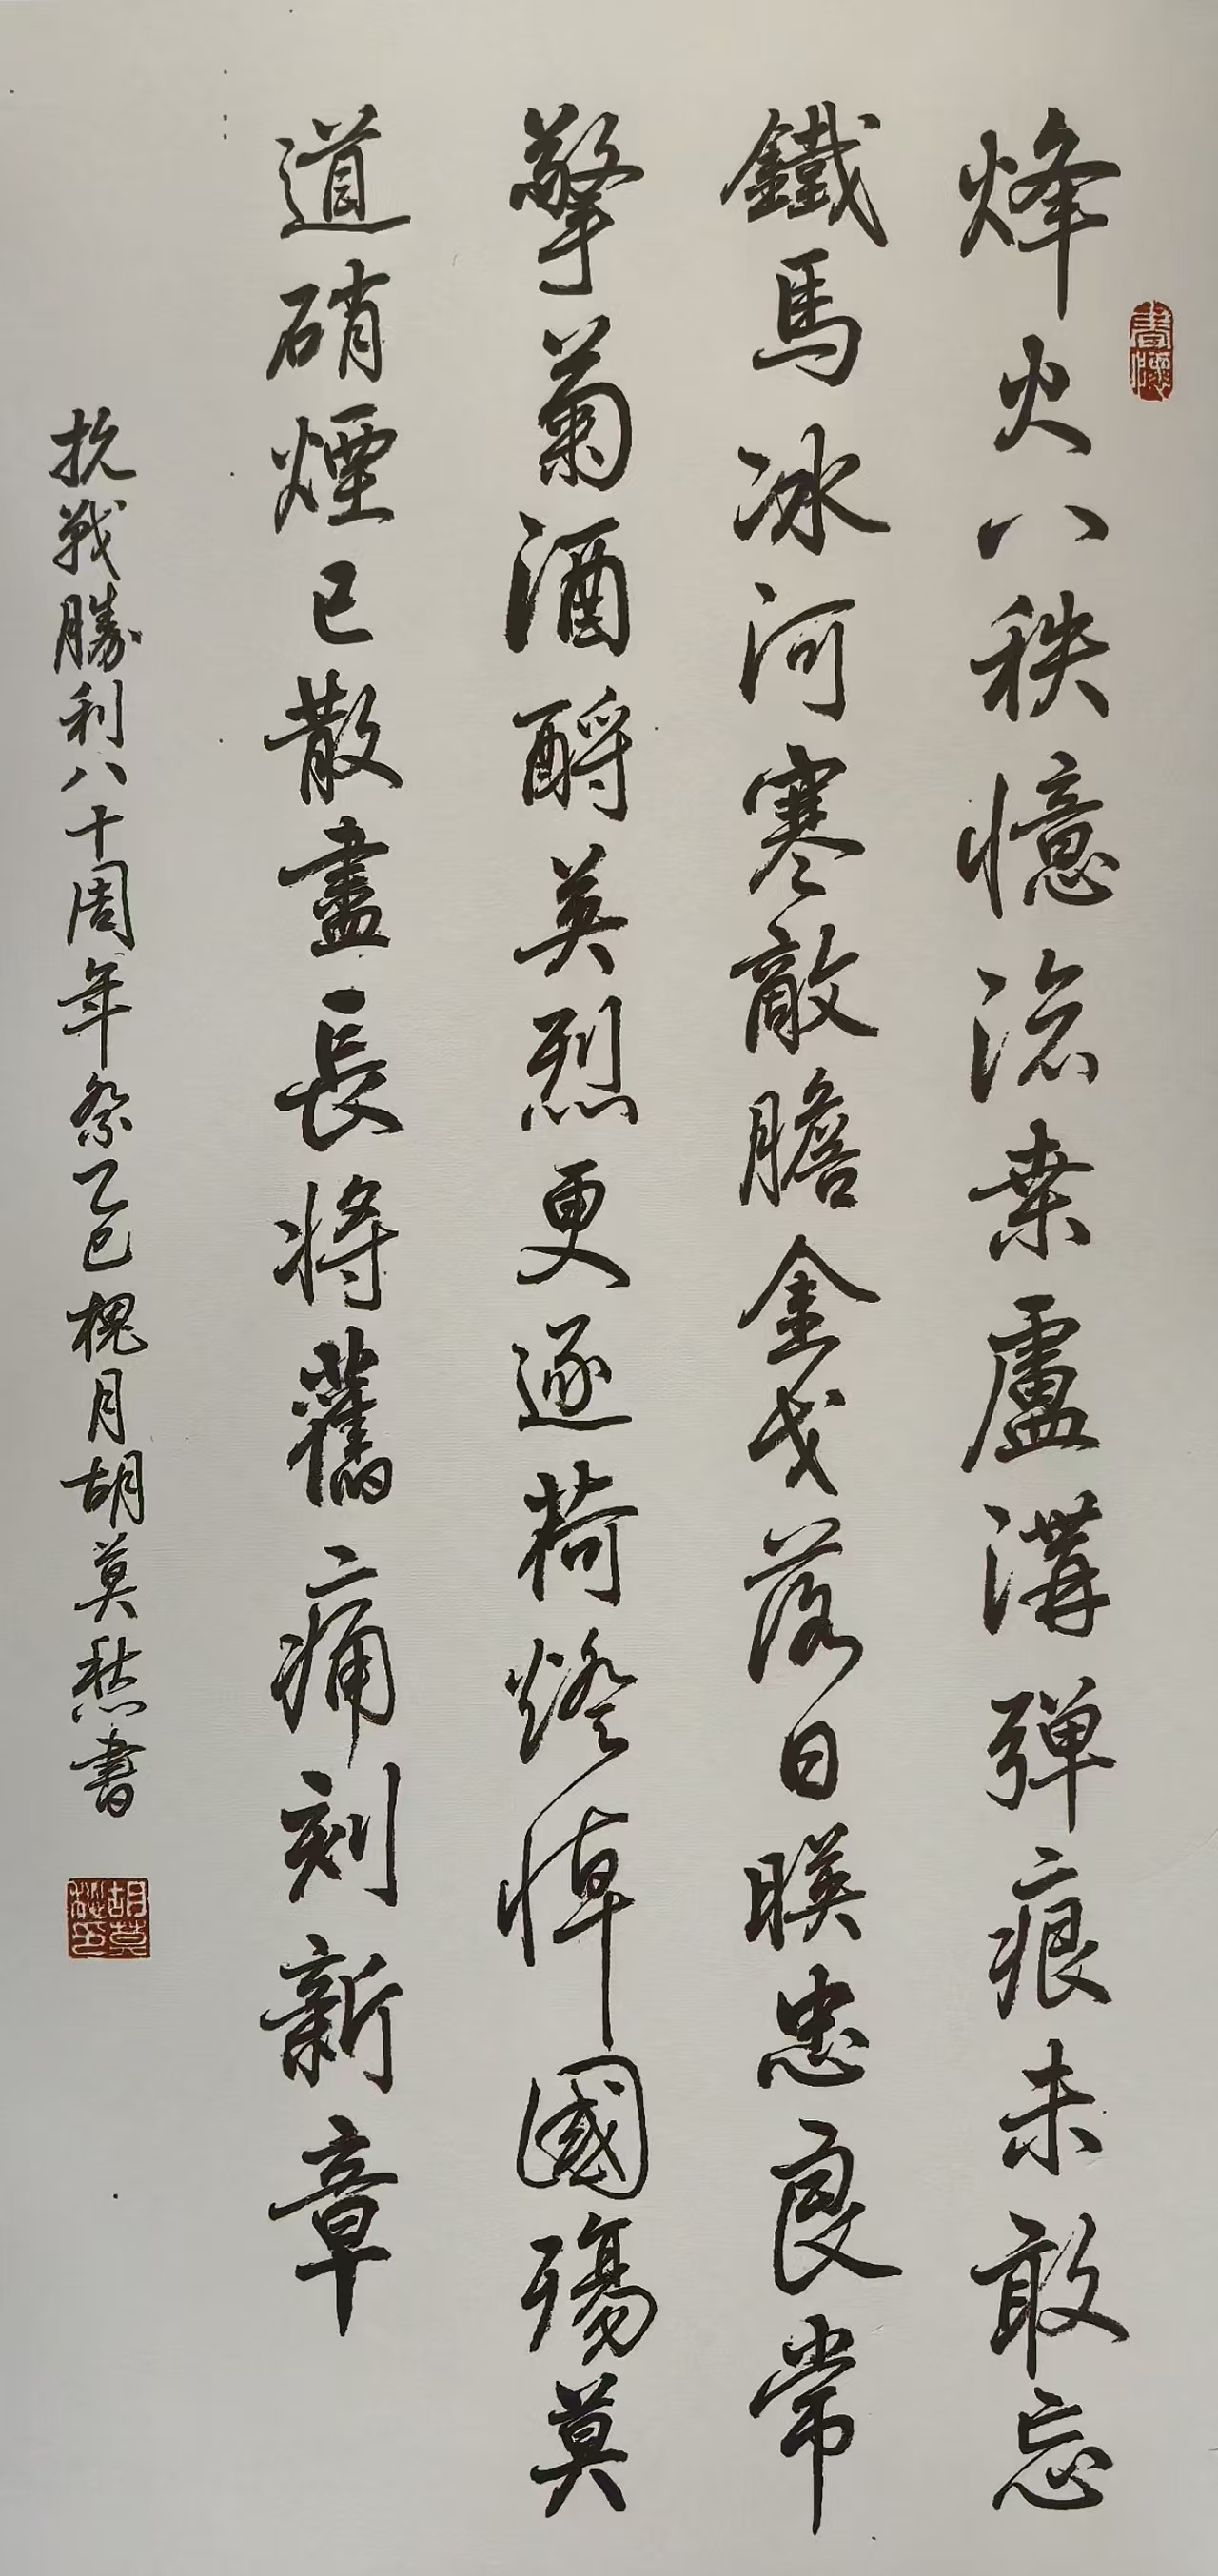 書懷
烽火八秩憶滄桒盧溝彈痕未敢忘
鐵馬冰河寒敵膽金戈落日暎忠良常
擎菊酒酹英烈更逐荷燈悼國殤莫
道硝煙已散盡長將舊痛刻新章
抗戰勝利八十周年祭乙巳槐月胡莫愁書
胡莫愁印